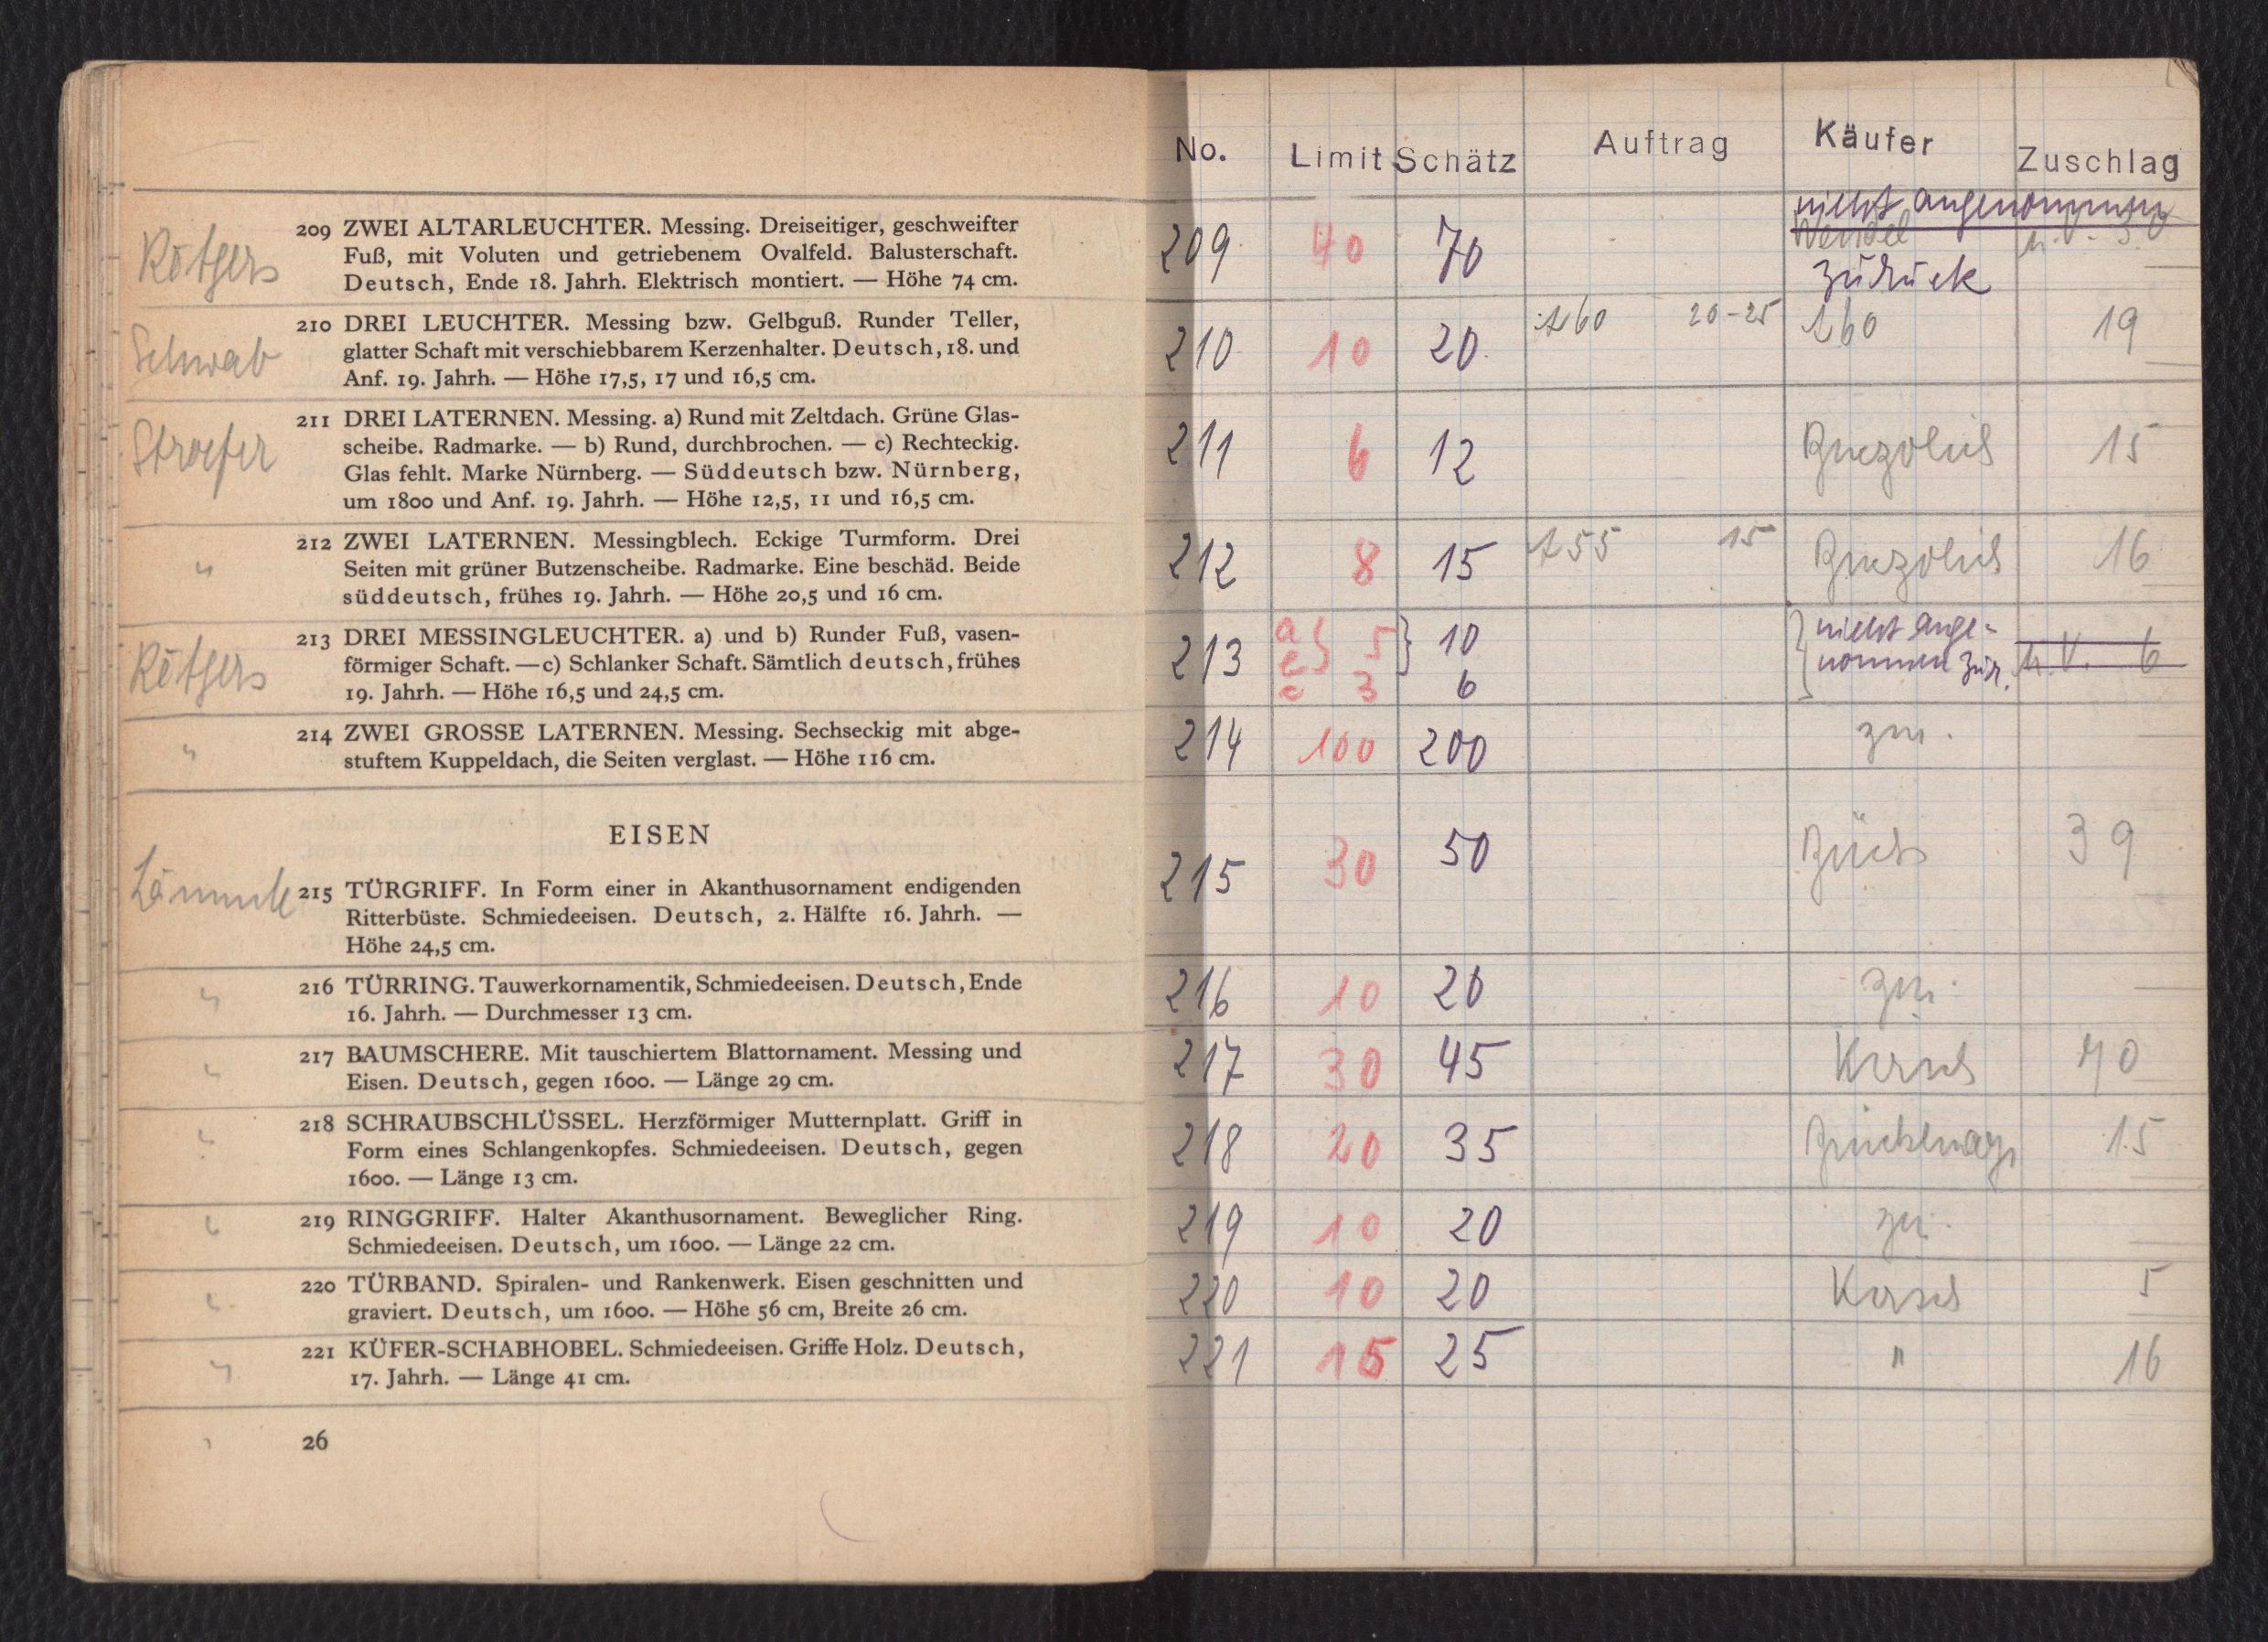 Rötgers
209 ZWEI ALTARLEUCHTER. Messing. Dreiseitiger, geschweifter
Fuß, mit Voluten und getriebenem Ovalfeld. Balusterschaft.
Deutsch, Ende 18. Jahrh. Elektrisch montiert. — Höhe 74 cm.
Schwab
210 DREI LEUCHTER. Messing bzw. Gelbguß. Runder Teller,
glatter Schaft mit verschiebbarem Kerzenhalter. Deutsch, 18. und
Anf. 19. Jahrh. — Höhe 17,5, 17 und 16,5 cm.
Stroefer
211 DREI LATERNEN. Messing. a) Rund mit Zeltdach. Grüne Glas-
scheibe. Radmarke. — b) Rund, durchbrochen. — c) Rechteckig.
Glas fehlt. Marke Nürnberg. — Süddeutsch bzw. Nürnberg,
um 1800 und Anf. 19. Jahrh. — Höhe 12,5, 11 und 16,5 cm.
"
212 ZWEI LATERNEN. Messingblech. Eckige Turmform. Drei
Seiten mit grüner Butzenscheibe. Radmarke. Eine beschäd. Beide
süddeutsch, frühes 19. Jahrh. — Höhe 20,5 und 16 cm.
Rötgers
213 DREI MESSINGLEUCHTER. a) und b) Runder Fuß, vasen-
förmiger Schaft. — c) Schlanker Schaft. Sämtlich deutsch, frühes
19. Jahrh. — Höhe 16,5 und 24,5 cm.
"
214 ZWEI GROSSE LATERNEN. Messing. Sechseckig mit abge-
stuftem Kuppeldach, die Seiten verglast. — Höhe 116 cm.
EISEN
Lämmle
215 TÜRGRIFF. In Form einer in Akanthusornament endigenden
Ritterbüste. Schmiedeeisen. Deutsch, 2. Hälfte 16. Jahrh. —
Höhe 24,5 cm.
"
216 TÜRRING. Tauwerkornamentik, Schmiedeeisen. Deutsch, Ende
16. Jahrh. — Durchmesser 13 cm.
"
217 BAUMSCHERE. Mit tauschiertem Blattornament. Messing und
Eisen. Deutsch, gegen 1600. — Länge 29 cm.
"
218 SCHRAUBSCHLÜSSEL. Herzförmiger Mutternplatt. Griff in
Form eines Schlangenkopfes. Schmiedeeisen. Deutsch, gegen
1600. — Länge 13 cm.
"
219 RINGGRIFF. Halter Akanthusornament. Beweglicher Ring.
Schmiedeeisen. Deutsch, um 1600. — Länge 22 cm.
"
220 TÜRBAND. Spiralen- und Rankenwerk. Eisen geschnitten und
graviert. Deutsch, um 1600. — Höhe 56 cm, Breite 26 cm.
"
221 KÜFER-SCHABHOBEL. Schmiedeeisen. Griffe Holz. Deutsch,
17. Jahrh. — Länge 41 cm.
26
No. Limit Schätz Auftrag Käufer Zuschlag
nicht angenommen
209 40 70
zurück
210 10 20 60 20-25 60 19
211 6 12 15
212 8 15 55 15 16
213 a 5 10 nicht ange-
nommen zur. u. V. 6
c 3 6
214 100 200 zur.
215 30 50 39
216 10 20 zur.
217 30 45 40
218 20 35 15
219 10 20 zur.
220 10 20 5
221 15 25 " 16